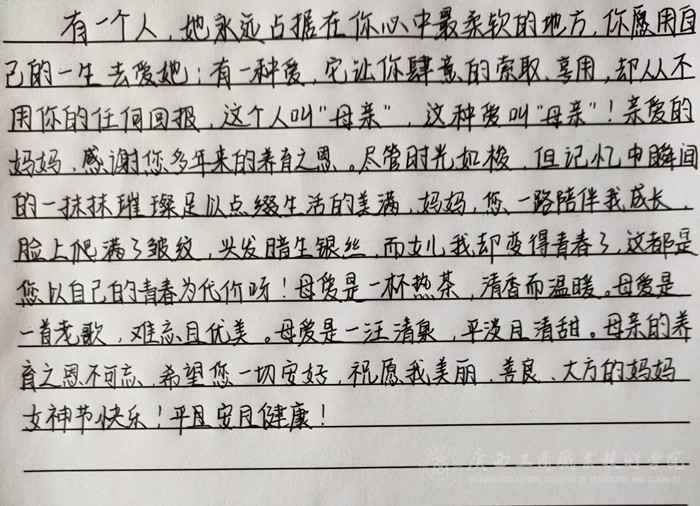 有一个人，她永远占据在你心中最柔软的地方，你愿用自
己的一生去爱她；有一种爱，它让你肆意的索取、享用，却从不
用你的任何回报，这个人叫"母亲"，这种爱叫"母亲"！亲爱的
妈妈，感谢您多年来的养育之恩。尽管时光如梭，但记忆中瞬间
的一抹抹璀璨足以点缀生活的美满，妈妈，您一路陪伴我成长，
脸上爬满了皱纹，头发暗生银丝，而女儿我却变得青春了，这都是
您以自己的青春为代价呀！母爱是一杯热茶，清香而温暖。母爱是
一首老歌，难忘且优美。母爱是一汪清泉，平淡且清甜。母亲的养
育之恩不可忘，希望您一切安好，祝愿我美丽、善良、大方的妈妈
女神节快乐！平且安且健康！
广西工商职业技术学院
GUANGXI VOCATIONAL COLLEGE OF TECNOLOGY AND BUSINESS